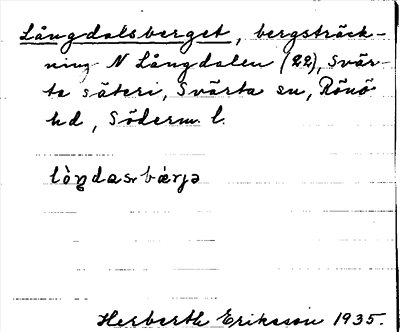 Långdalsberget, bergsträck-
ning N Långdalen (22), Svär-
ta säteri, Svärta sn, Rönö
hd, Söderm. l.
Herberth Eriksson 1935.